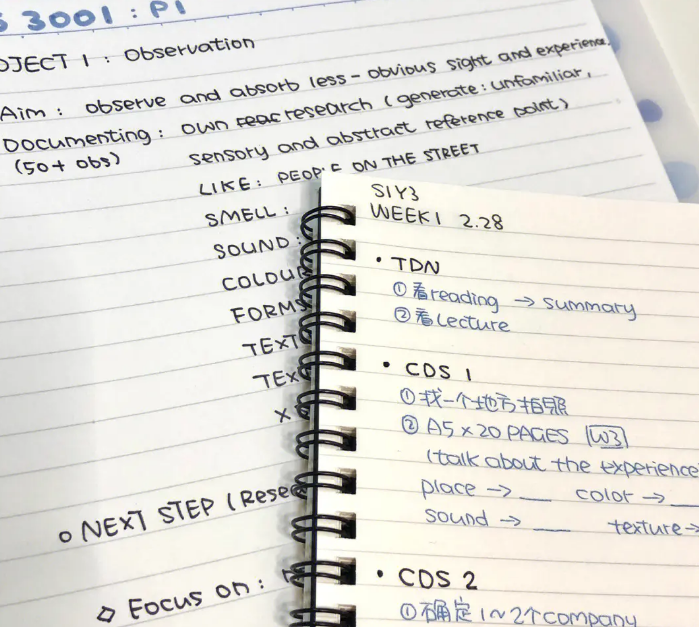 3001 : P1
OJECT 1 : Observation
Aim : observe and absorb less-obvious sight and experience.
Documenting : own research (generate : unfamiliar,
(50+ obs) sensory and abstract reference point)
LIKE : PEOPLE ON THE STREET
SMELL :
SOUND :
COLOU
FORMS
TEXT
TEX
X
○ NEXT STEP (Rese
◇ Focus on :
S1Y3
WEEK1 2.28
• TDN
① 看reading → summary
② 看Lecture
• CDS 1
① 找一个地方拍照
② A5 × 20 PAGES W3
(talk about the experience
place → __ color → __
sound → __ texture →
• CDS 2
① 确定 1~2个company